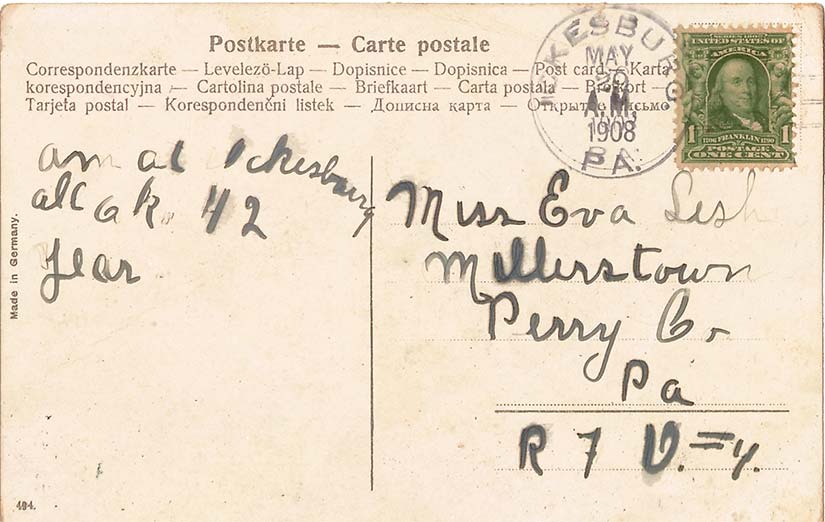 Postkarte — Carte postale
Correspondenzkarte — Levelezö-Lap — Dopisnice — Dopisnica — Post card — Karta
korespondencyjna — Cartolina postale — Briefkaart — Carta postala — Brefkort —
Tarjeta postal — Korespondenčni listek — Дописна карта — Открытое письмо
ICKESBURG
MAY
A.M.
1908
PA.
SERIES 1902
UNITED STATES OF
AMERICA
1 1706 FRANKLIN 1790 1
POSTAGE
ONE CENT
am at Ickesburg
all ok. 42
year
Miss Eva Lesh
Millerstown
Perry Co
Pa
R 7
Made in Germany.
494.